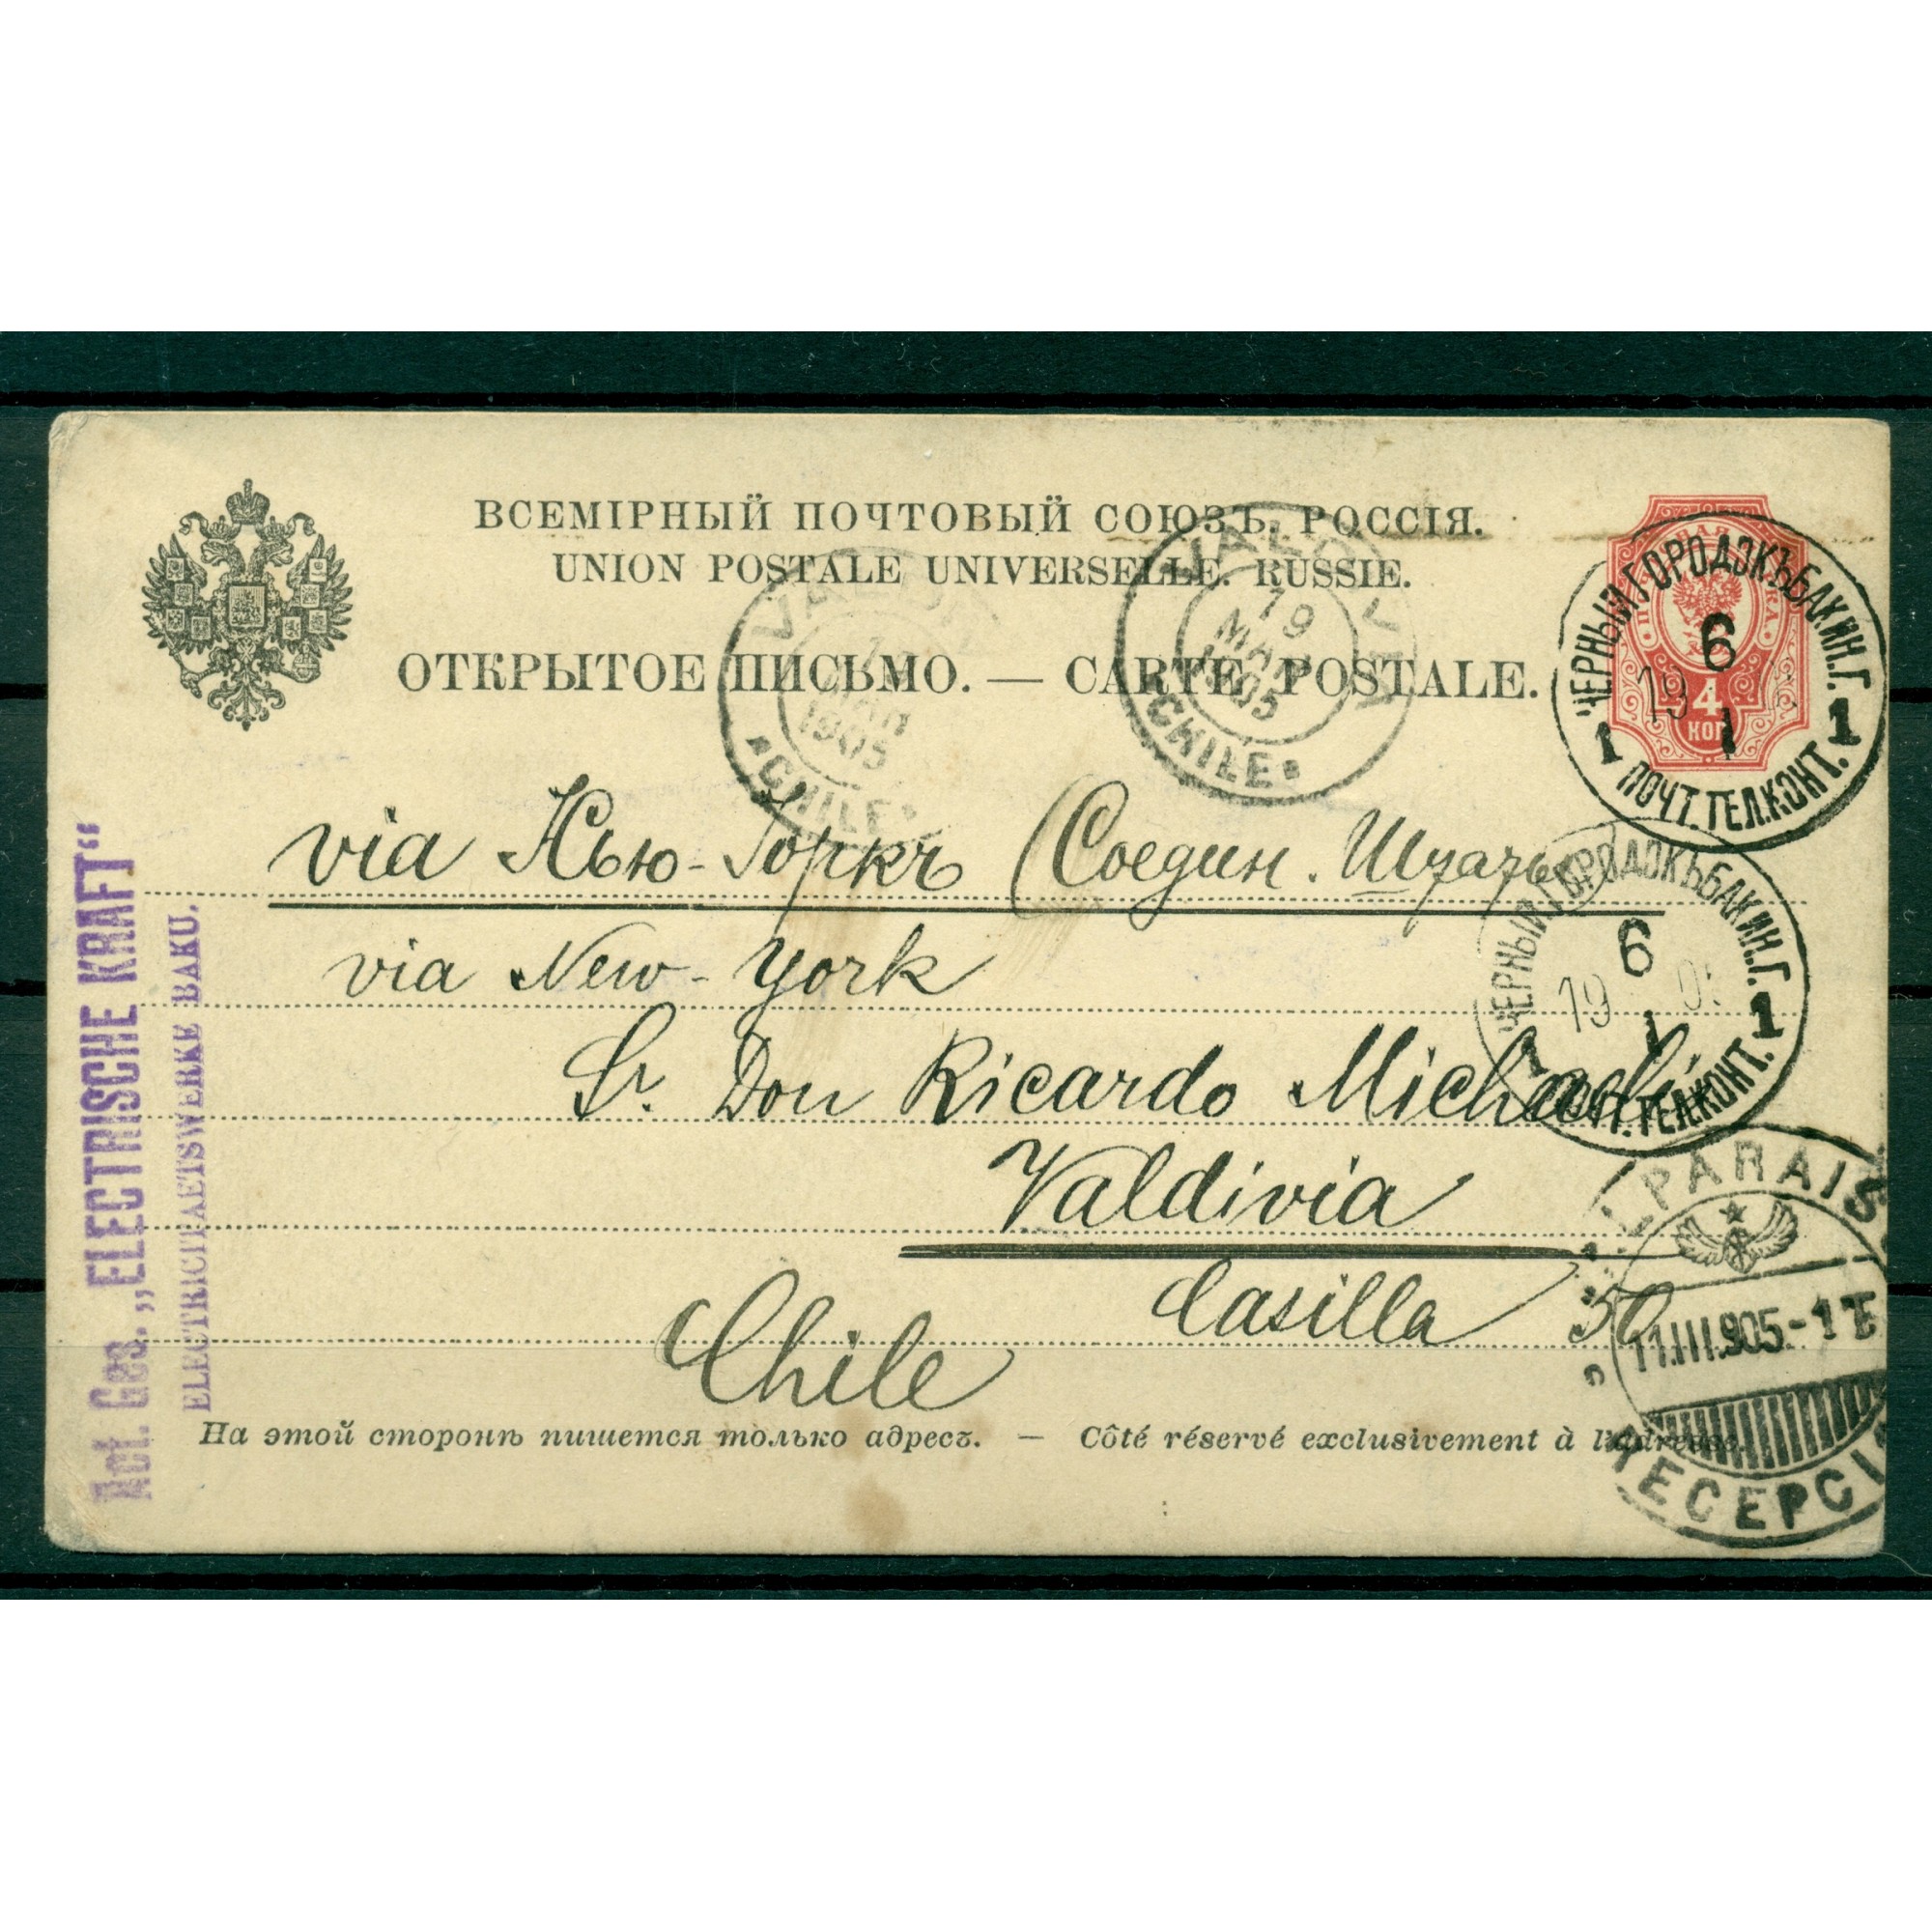 ВСЕМІРНЫЙ ПОЧТОВЫЙ СОЮЗЪ. РОССІЯ.
UNION POSTALE UNIVERSELLE. RUSSIE.
ОТКРЫТОЕ ПИСЬМО. — CARTE POSTALE.
4
КОП
ЧЕРНЫЙ ГОРОДОКЪ БАКИН.Г.
6
19
1
1 1
ПОЧТ.ТЕЛ.КОНТ.
1905
CHILE
19
MAR
1905
CHILE
via Нью-Іоркъ (Соедин. Штаты)
via New-York
Sr. Don Ricardo Michaeli
Valdivia
Casilla 50
Chile
ЧЕРНЫЙ ГОРОДОКЪ БАКИН.Г.
6
19 05
1
1 1
ПОЧТ.ТЕЛ.КОНТ.
LPARAIS
11.III.905.-1
На этой сторонѣ пишется только адресъ. — Côté réservé exclusivement à l'adresse.
Act. Ges. „ELECTRISCHE KRAFT“
ELECTRICITAETSWERKE BAKU.